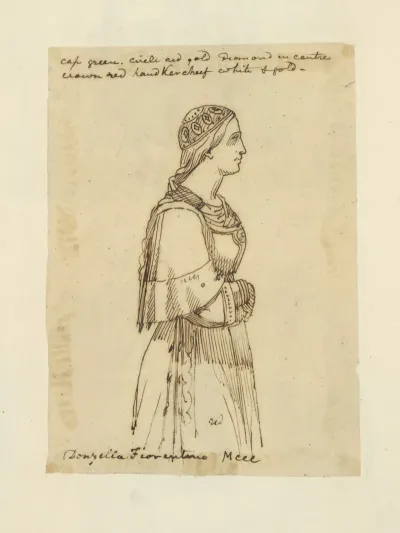 cap green. circle red gold Diamond in centre
crown red handKercheef white & gold -
red
Donzella Fiorentina Mccc